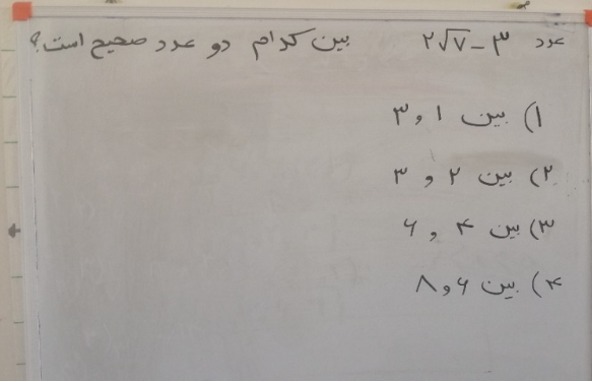 عدد ۲√۷ − ۳ بین کدام دو عدد صحیح است؟
۱) بین ۱ و ۳
۲) بین ۲ و ۳
۳) بین ۴ و ۶
۴) بین ۶ و ۸